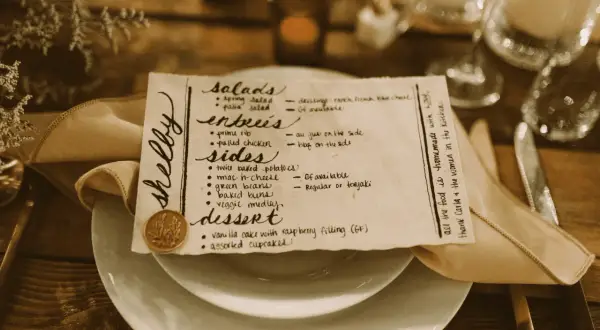 shelby
salads
• spring salad — dressings: ranch, french, blue cheese
• pasta salad — GF available
entreés
• prime rib — au jus on the side
• pulled chicken — bbq on the side
sides
• twice baked potatoes
• mac n cheese — GF available
• green beans — Regular or teriyaki
• baked beans
• veggie medley
dessert
• vanilla cake with raspberry filling (GF)
• assorted cupcakes
all the food is homemade with love,
thank Carla & the women in the kitchen